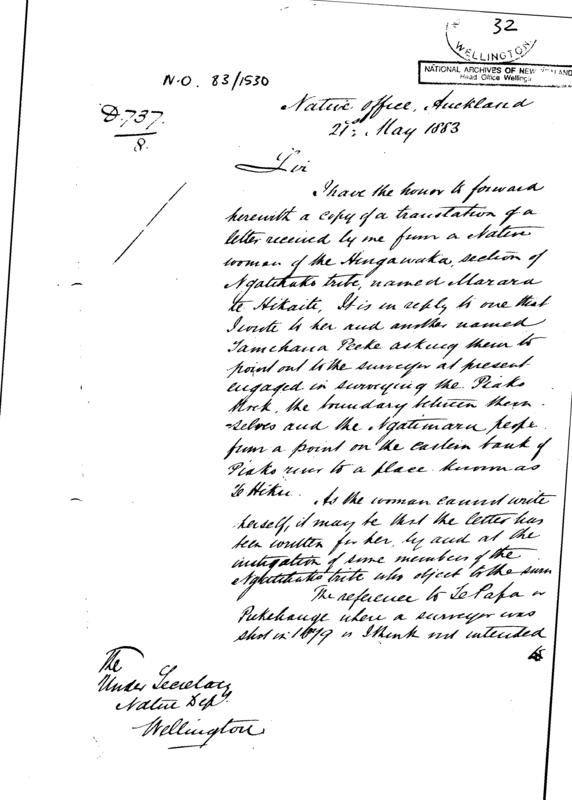 32
WELLINGTON
NATIONAL ARCHIVES OF NEW ZEALAND
Head Office Wellington
N.O. 83/1530
D.737.
8.
Native Office, Auckland
21st May 1883
Sir
I have the honor to forward
herewith a copy of a translation of a
letter received by me from a Native
woman of the Hingawaka, section of
Ngatihako tribe, named Marara
te Hikaiti, It is in reply to one that
I wrote to her and another named
Tamehana Peeke asking them to
point out to the surveyor at present
engaged in surveying the Piako
Block, the boundary between them-
-selves and the Ngatimaru people
from a point on the eastern bank of
Piako river to a place known as
Te Hiku.
As the woman cannot write
herself, it may be that the letter has
been written for her, by and at the
instigation of some members of the
Ngatihako tribe who object to the
The reference to Te Papa or
Pukehange where a surveyor was
shot in 1879 is I think not intended
as
The
Under Secretary
Native Dept.
Wellington